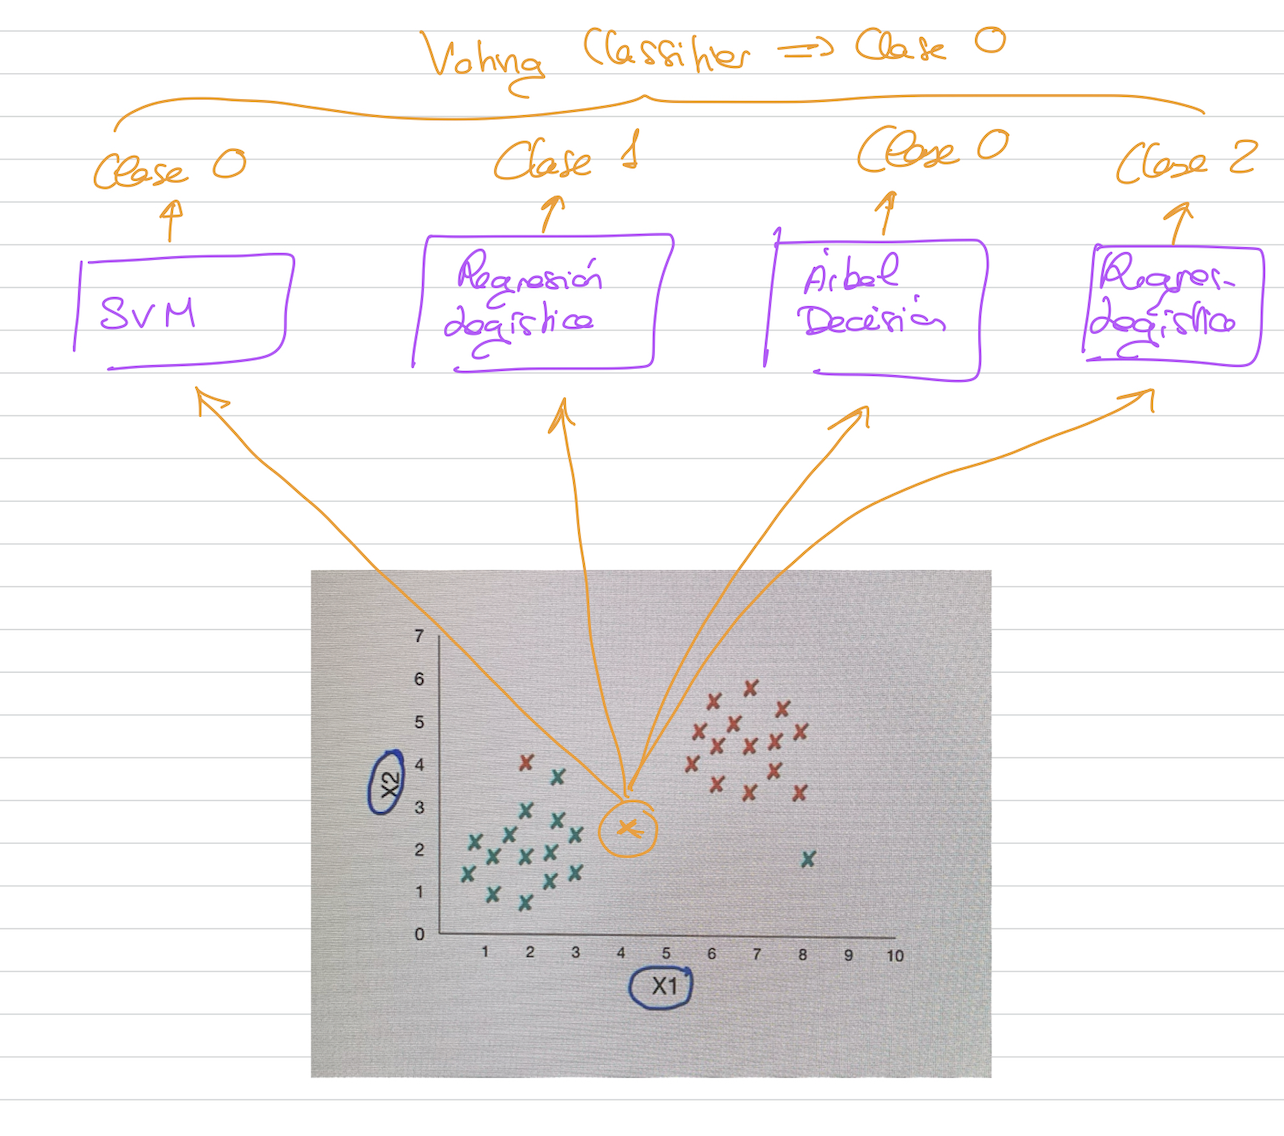 Voting Classifier => Clase 0
Clase 0 Clase 1 Clase 0 Clase 2
SVM
Regresión
Logística
Árbol
Decisión
Regres.
Logística
7
6
5
4
3
2
1
0
X2
1 2 3 4 5 6 7 8 9 10
X1